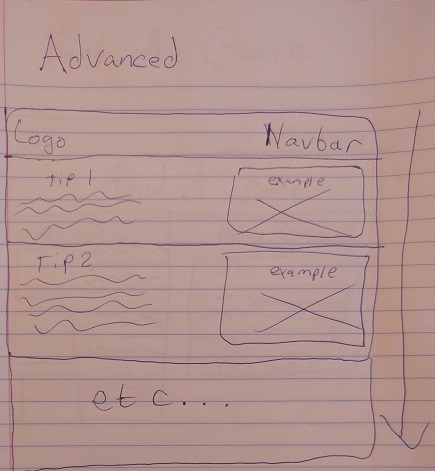 Advanced
Logo Navbar
Tip 1 example
Tip 2 example
etc...